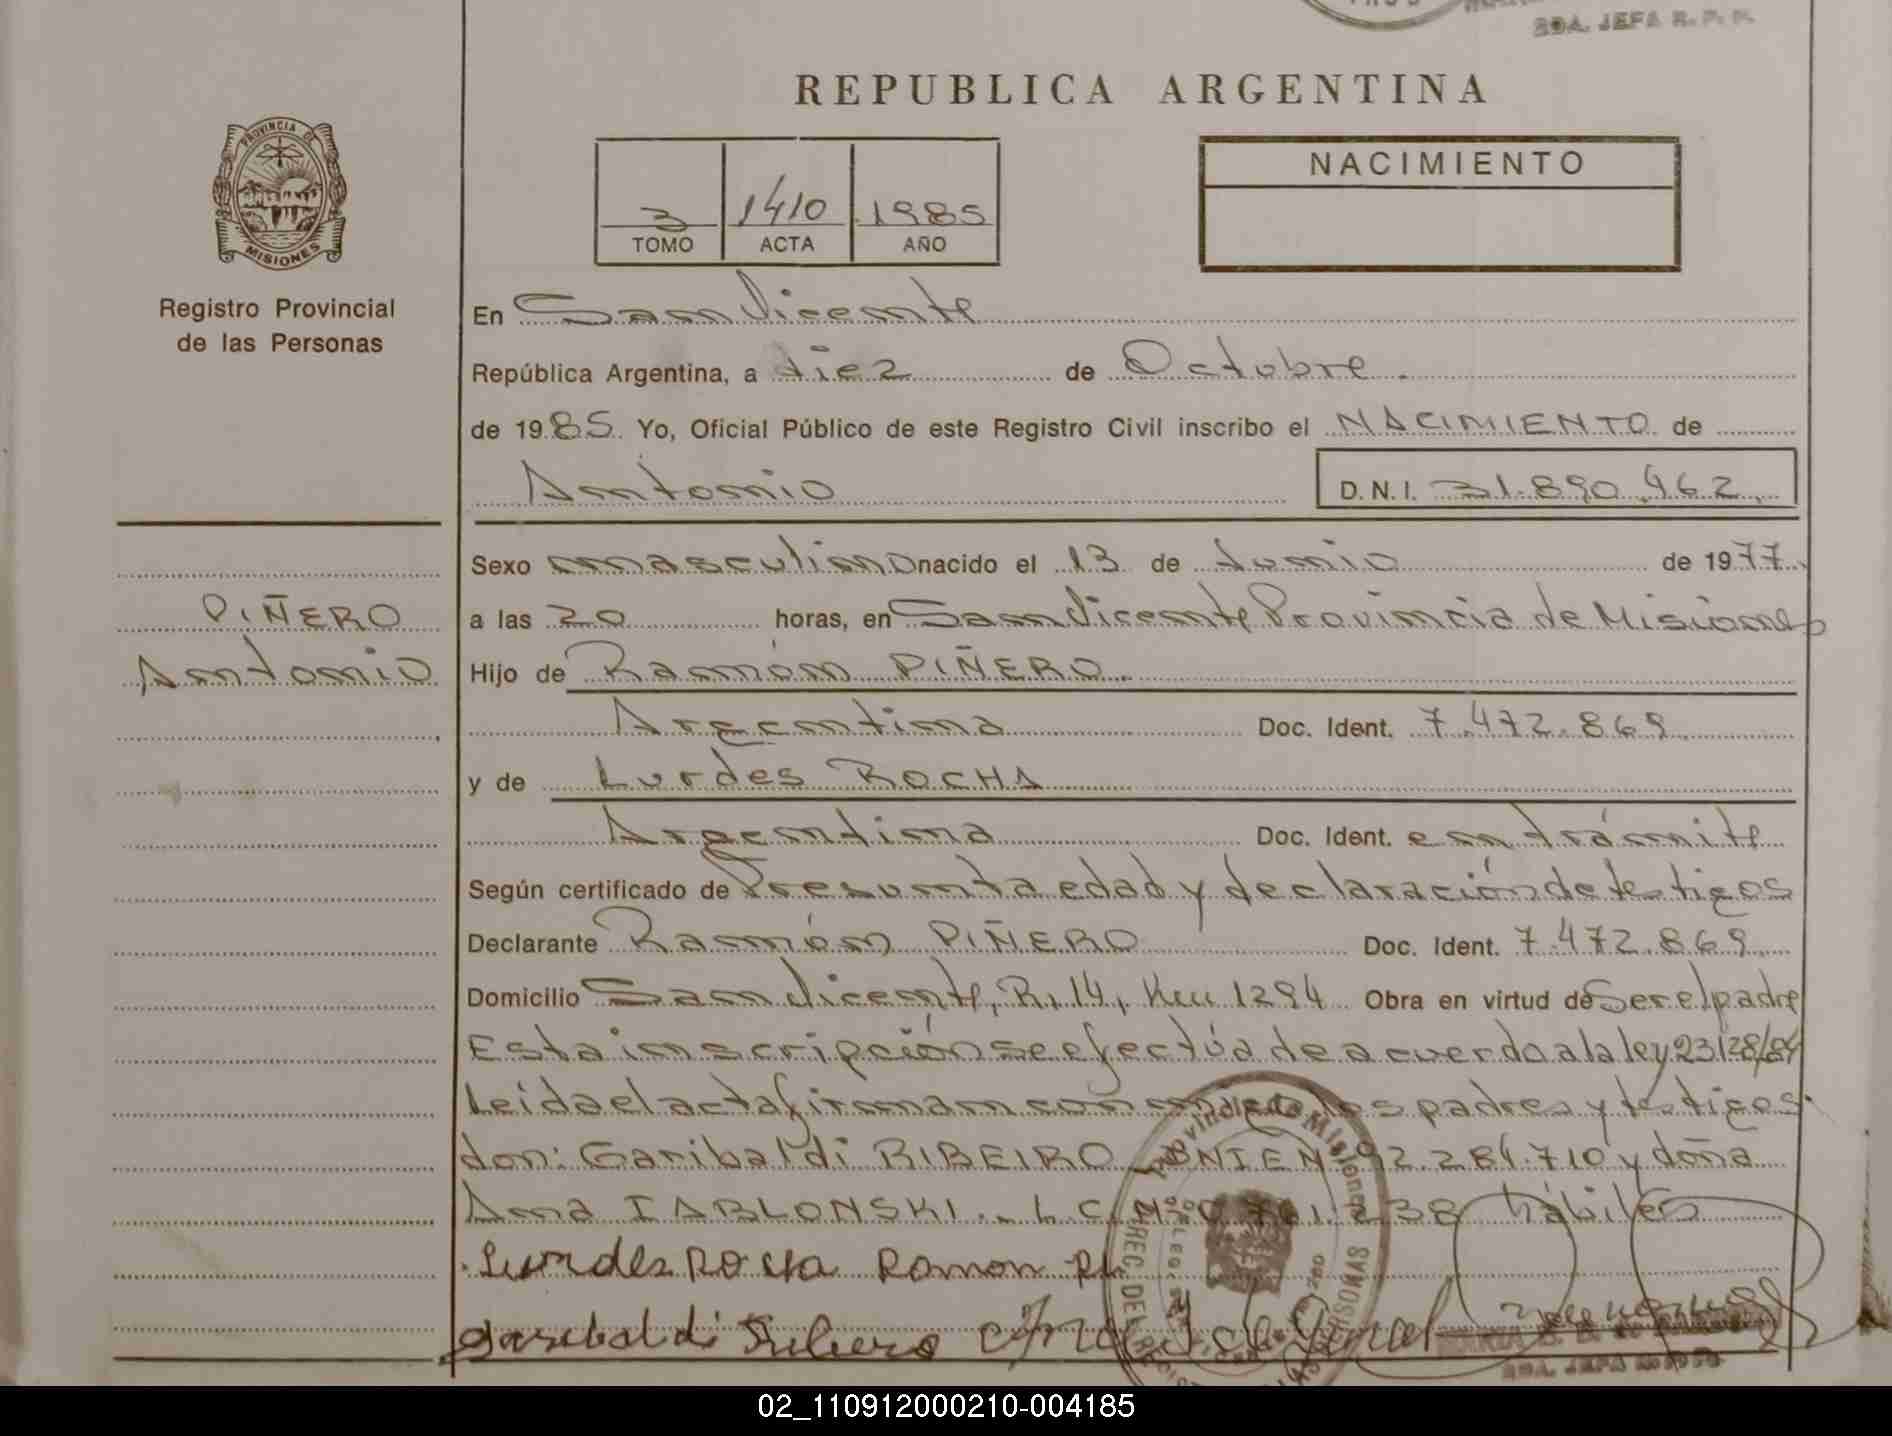 SDA. JEFA R. P. P.
REPUBLICA ARGENTINA
PROVINCIA DE
MISIONES
Registro Provincial
de las Personas
3 1410 1985
TOMO ACTA AÑO
NACIMIENTO
En San Vicente
República Argentina, a diez de Octubre.
de 1985 Yo, Oficial Público de este Registro Civil inscribo el NACIMIENTO de
Antonio D.N.I. 31.890.462
Sexo masculino nacido el 13 de Junio de 1977
PIÑERO
Antonio
a las 20 horas, en San Vicente Provincia de Misiones
Hijo de Ramón PIÑERO
Argentina Doc. Ident. 7.472.869
y de Lurdes ROCHA
Argentina Doc. Ident. en trámite
Según certificado de Presunta edad y declaración de testigos
Declarante Ramón PIÑERO Doc. Ident. 7.472.869
Domicilio San Vicente, R. 14, Km 1294 Obra en virtud de Ser el padre
Esta inscripción se efectúa de acuerdo a la ley 23128/84
Leida el acta firman conmigo los padres y testigos
don: Garibaldi RIBEIRO DNI EN 92.284.710 y doña
Anna IABLONSKI. L C Nº 238 hábiles
Lurdes Rocha Ramon
Garibaldi
SDA. JEFA
02_110912000210-004185